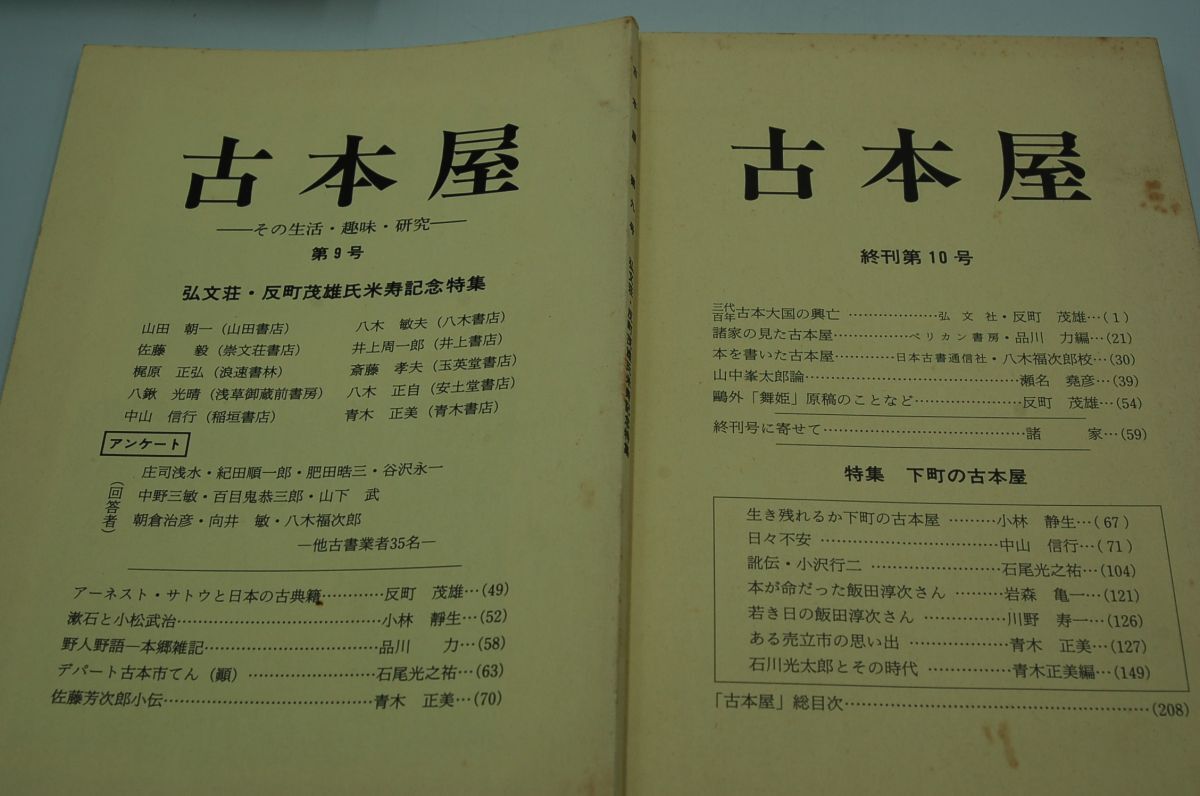 古本屋
――その生活・趣味・研究――
第9号
弘文荘・反町茂雄氏米寿記念特集
山田 朝一(山田書店) 八木 敏夫(八木書店)
佐藤 毅(崇文荘書店) 井上周一郎(井上書店)
梶原 正弘(浪速書林) 斎藤 孝夫(玉英堂書店)
八鍬 光晴(浅草御蔵前書房) 八木 正自(安土堂書店)
中山 信行(稲垣書店) 青木 正美(青木書店)
アンケート
(回答者)
庄司浅水・紀田順一郎・肥田晧三・谷沢永一
中野三敏・百目鬼恭三郎・山下 武
朝倉治彦・向井 敏・八木福次郎
―他古書業者35名―
アーネスト・サトウと日本の古典籍…………反町 茂雄…(49)
漱石と小松武治……………………………小林 靜生…(52)
野人野語―本郷雑記………………………品川 力…(58)
デパート古本市てん(顚)…………………石尾光之祐…(63)
佐藤芳次郎小伝……………………………青木 正美…(70)
古本屋
終刊第10号
三代百年古本大国の興亡………………弘文社・反町 茂雄…(1)
諸家の見た古本屋…………ペリカン書房・品川 力編…(21)
本を書いた古本屋…………日本古書通信社・八木福次郎校…(30)
山中峯太郎論………………………………瀬名 堯彦…(39)
鷗外「舞姫」原稿のことなど………………反町 茂雄…(54)
終刊号に寄せて……………………………諸 家…(59)
特集 下町の古本屋
生き残れるか下町の古本屋………小林 静生…(67)
日々不安……………………………中山 信行…(71)
訛伝・小沢行二……………………石尾光之祐…(104)
本が命だった飯田淳次さん………岩森 亀一…(121)
若き日の飯田淳次さん……………川野 寿一…(126)
ある売立市の思い出………………青木 正美…(127)
石川光太郎とその時代……………青木正美編…(149)
「古本屋」総目次……………………………………………(208)